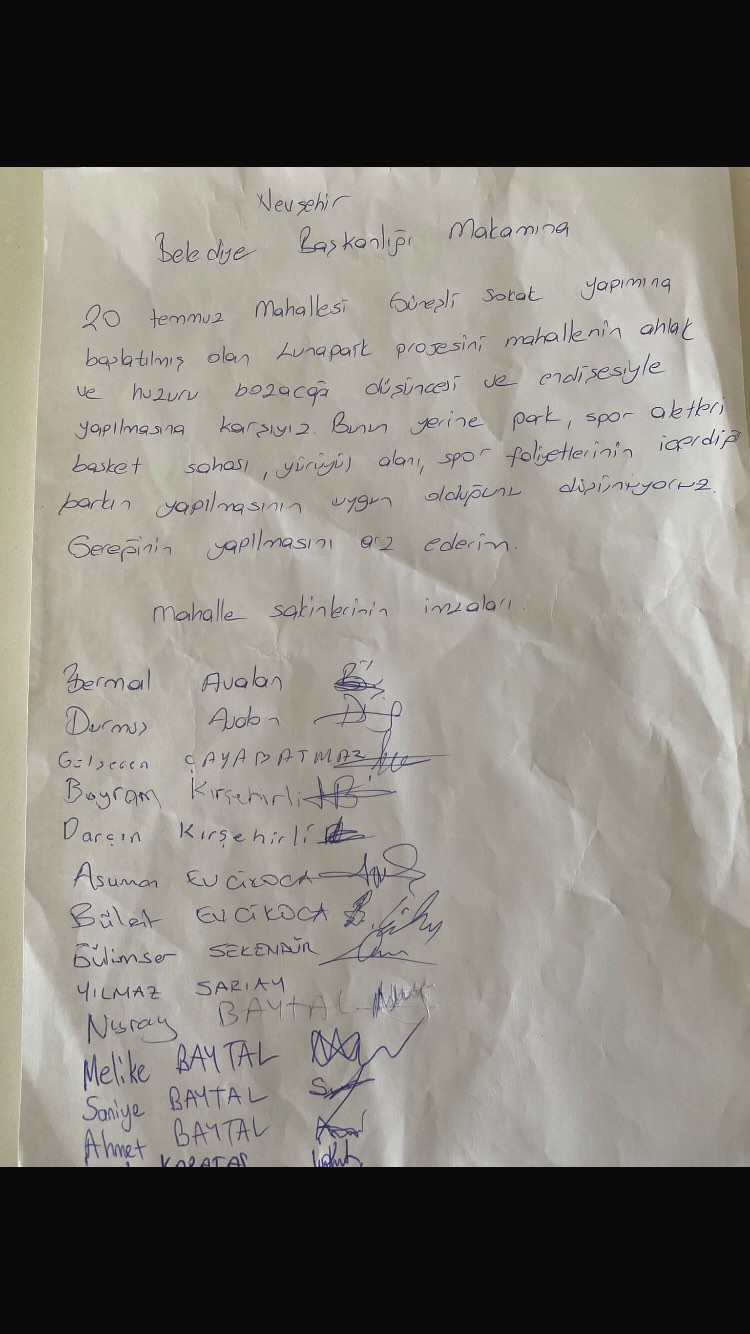 Nevşehir
Belediye Başkanlığı Makamına
20 temmuz Mahallesi Güneşli sokak yapımına
başlatılmış olan Lunapark projesini mahallenin ahlak
ve huzuru bozacağı düşüncesi ve endişesiyle
yapılmasına karşıyız. Bunun yerine park, spor aletleri
basket sahası, yürüyüş alanı, spor foliyetlerinin içerdiği
parkın yapılmasının uygun olduğunu düşünüyoruz.
Gereğinin yapılmasını arz ederim.
Mahalle sakinlerinin imzaları.
Avalan
Durmuş
ÇAYABATMAZ
Bayram Kırşehirli
Darçın Kırşehirli
Asuman EVCİKOCA
Bülent EVCİKOCA
Gülimser
YILMAZ SARIAY
Nuray BAYTAL
Melike BAYTAL
Saniye BAYTAL
Ahmet BAYTAL